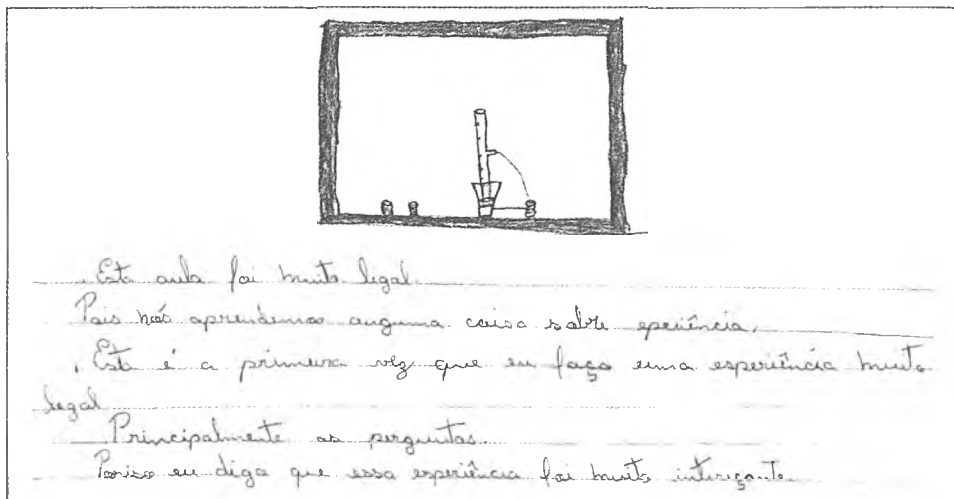 . Esta aula foi muito legal.
Pois nós aprendemos auguma coisa sobre eperiência.
. Esta é a primeira vez que eu faço uma esperiência muito
legal
Principalmente as perguntas.
Porisso eu digo que essa esperiência foi muito interiçante.